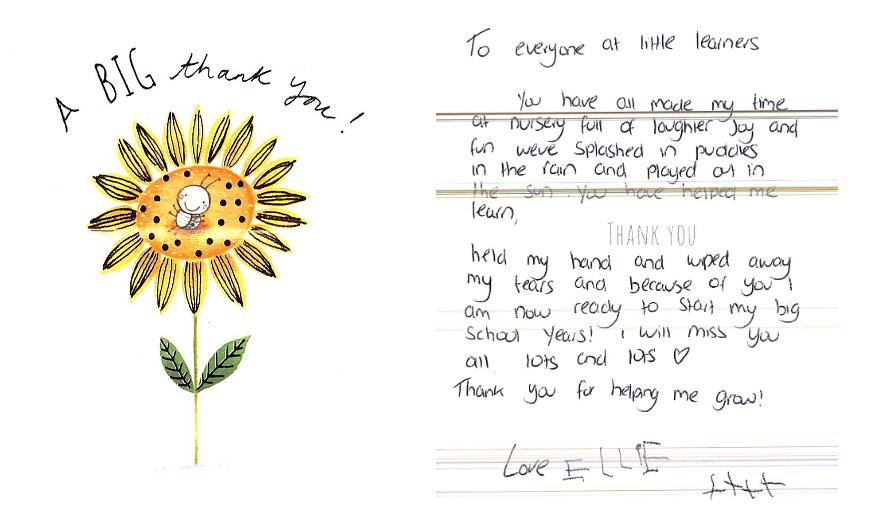 A BIG thank you!
To everyone at little learners
You have all made my time
at nursery full of laughter Joy and
fun weve splashed in puddles
in the rain and played out in
the sun. You have helped me
learn,
THANK YOU
held my hand and wiped away
my tears and because of you i
am now ready to start my big
School Years! i will miss you
all lots and lots ♡
Thank you for helping me grow!
Love ELLIE
++++